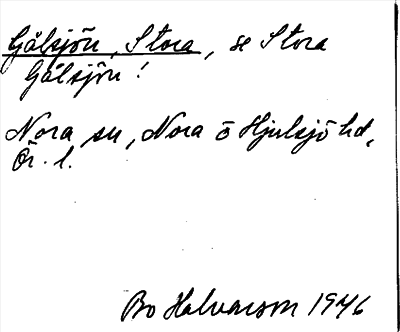 Gålsjön, Stora, se Stora
Gålsjön!
Nora sn, Nora o Hjulsjö hd,
Ör. l.
Bo Halvarson 1946